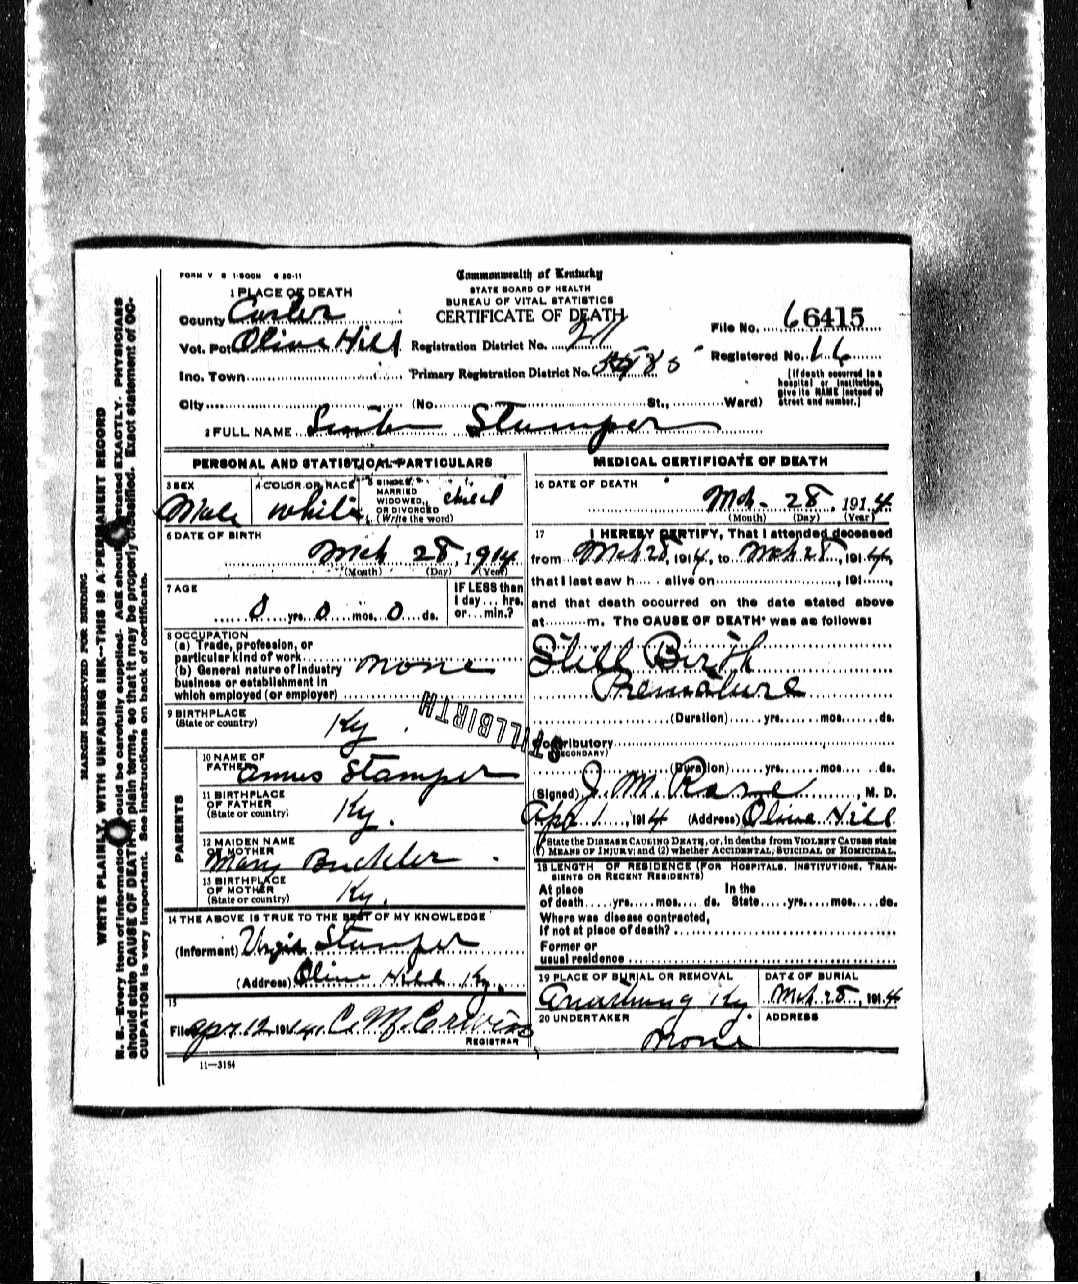 FORM V S 1-500M 6 20-11
Commonwealth of Kentucky
STATE BOARD OF HEALTH
BUREAU OF VITAL STATISTICS
CERTIFICATE OF DEATH
1 PLACE OF DEATH
County Carter
Vot. Pct Olive Hill
Registration District No.
File No. 6 6415
Ino. Town
Primary Registration District No.
Registered No. 16
[If death occurred in a hospital or institution, give its NAME instead of street and number.]
City (No. St., Ward)
2 FULL NAME Stamper
PERSONAL AND STATISTICAL PARTICULARS
3 SEX Male
4 COLOR OR RACE White
5 SINGLE, MARRIED WIDOWED, OR DIVORCED (Write the word) child
6 DATE OF BIRTH
Mch 28, 1914
(Month) (Day) (Year)
7 AGE
0 yrs. 0 mos. 0 ds.
IF LESS than 1 day... hrs. or... min.?
8 OCCUPATION
(a) Trade, profession, or particular kind of work
(b) General nature of industry business or establishment in which employed (or employer)
none
9 BIRTHPLACE
(State or country) Ky.
STILLBIRTH
PARENTS
10 NAME OF FATHER Stamper
11 BIRTHPLACE OF FATHER (State or country) Ky.
12 MAIDEN NAME OF MOTHER Mary Buckler
13 BIRTHPLACE OF MOTHER (State or country) Ky.
14 THE ABOVE IS TRUE TO THE BEST OF MY KNOWLEDGE
(Informant) Stamper
(Address) Olive Hill Ky.
15
Filed Apr. 12 1914. C. M.
REGISTRAR
11—3184
MEDICAL CERTIFICATE OF DEATH
16 DATE OF DEATH
Mch- 28, 1914
(Month) (Day) (Year)
17 I HEREBY CERTIFY, That I attended deceased
from Mch 28, 1914, to Mch 28, 1914,
that I last saw h alive on , 191 ,
and that death occurred on the date stated above
at m. The CAUSE OF DEATH* was as follows:
Still Birth
Premature
(Duration) yrs. mos. ds.
Contributory
(SECONDARY)
(Duration) yrs. mos. ds.
(Signed) J. M. , M. D.
Apr 1, 1914 (Address) Olive Hill
*State the DISEASE CAUSING DEATH, or, in deaths from VIOLENT CAUSES state
(1) MEANS OF INJURY; and (2) whether ACCIDENTAL, SUICIDAL or HOMICIDAL.
18 LENGTH OF RESIDENCE (FOR HOSPITALS, INSTITUTIONS, TRANSIENTS OR RECENT RESIDENTS)
At place of death yrs. mos. ds. In the State yrs. mos. ds.
Where was disease contracted,
If not at place of death?
Former or
usual residence
19 PLACE OF BURIAL OR REMOVAL
Ky.
DATE OF BURIAL
Mch. 28, 1914
20 UNDERTAKER
none
ADDRESS
MARGIN RESERVED FOR BINDING
WRITE PLAINLY, WITH UNFADING INK--THIS IS A PERMANENT RECORD
N. B.—Every item of information should be carefully supplied. AGE should be stated EXACTLY. PHYSICIANS
should state CAUSE OF DEATH in plain terms, so that it may be properly classified. Exact statement of OC-
CUPATION is very important. See instructions on back of certificate.